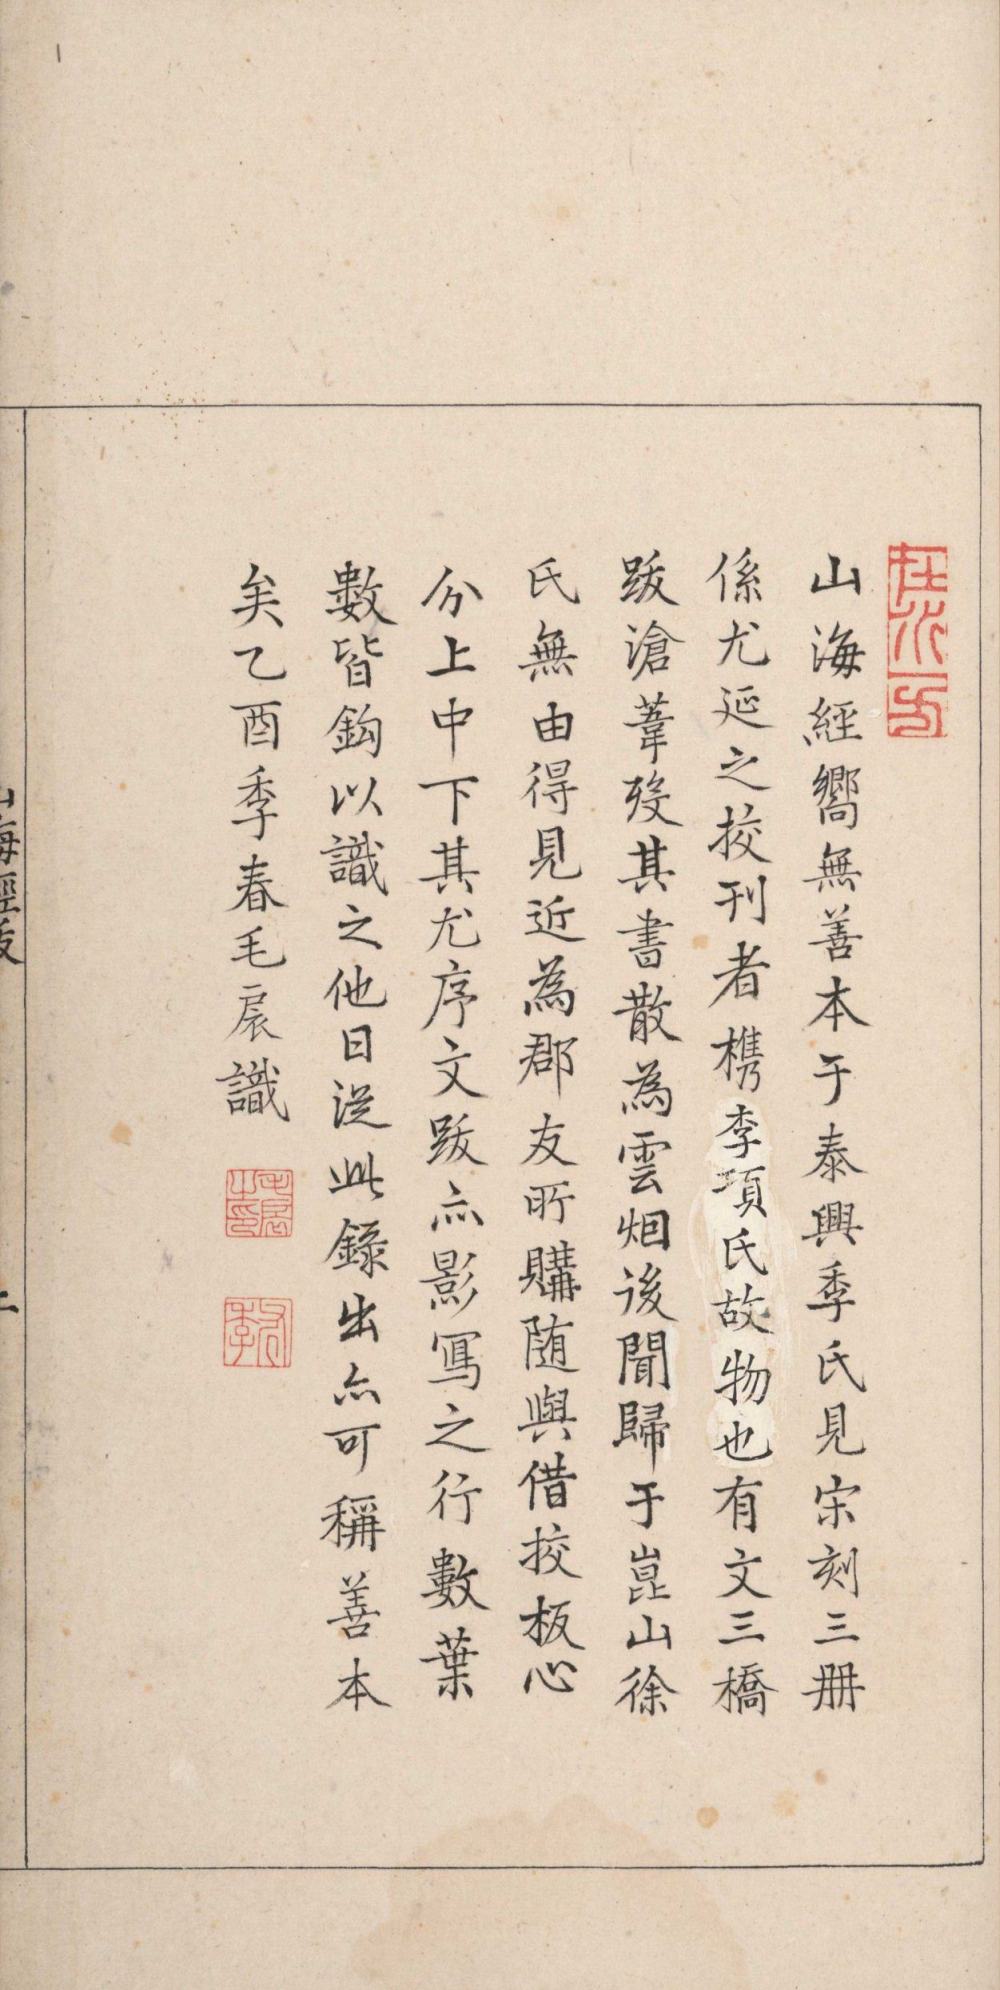 在水一方
山海經嚮無善本于泰興季氏見宋刻三册
係尤延之挍刊者檇李項氏故物也有文三橋
跋滄葦歿其書散為雲烟後聞歸于崑山徐
氏無由得見近為郡友所購随與借挍板心
分上中下其尤序文跋亦影寫之行數葉
數皆鈎以識之他日從此錄出亦可稱善本
矣乙酉季春毛扆識
毛扆之印
斧季
山海經跋